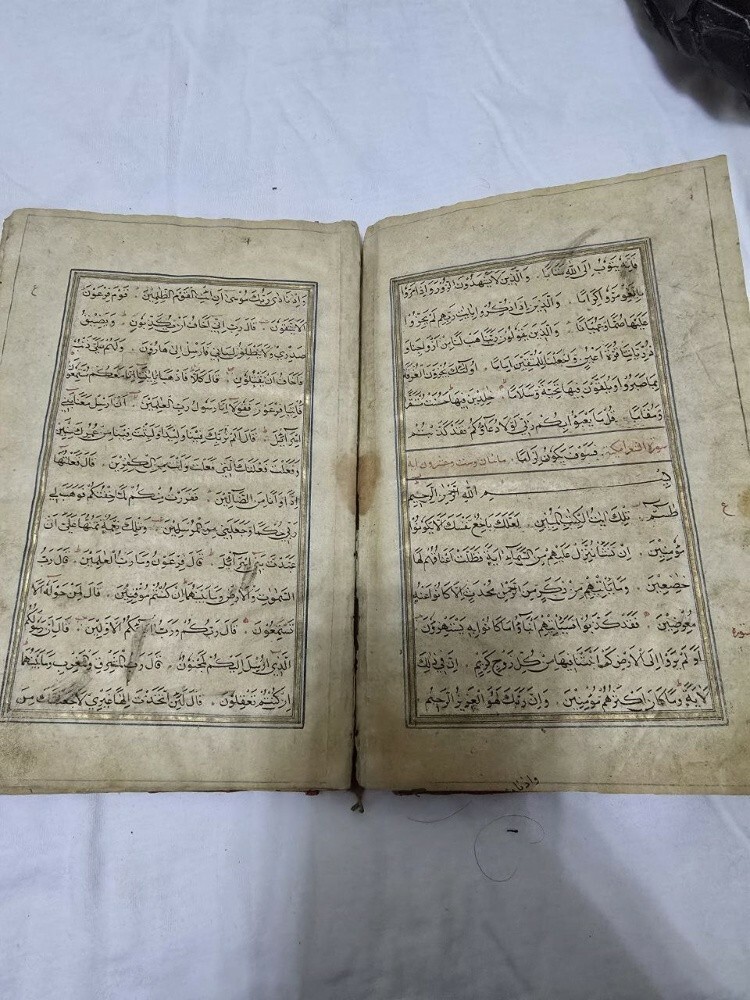 فَاِنَّهُ يَتُوبُ اِلَى اللّٰهِ مَتَابًا وَالَّذِينَ لَا يَشْهَدُونَ الزُّورَ وَاِذَا مَرُّوا
بِاللَّغْوِ مَرُّوا كِرَامًا وَالَّذِينَ اِذَا ذُكِّرُوا بِاٰيَاتِ رَبِّهِمْ لَمْ يَخِرُّوا
عَلَيْهَا صُمًّا وَعُمْيَانًا وَالَّذِينَ يَقُولُونَ رَبَّنَا هَبْ لَنَا مِنْ اَزْوَاجِنَا وَ
ذُرِّيَّاتِنَا قُرَّةَ اَعْيُنٍ وَاجْعَلْنَا لِلْمُتَّقِينَ اِمَامًا اُولٰئِكَ يُجْزَوْنَ الْغُرْفَةَ
بِمَا صَبَرُوا وَيُلَقَّوْنَ فِيهَا تَحِيَّةً وَسَلَامًا خٰلِدِينَ فِيهَا حَسُنَتْ مُسْتَقَرًّا
وَمُقَامًا قُلْ مَا يَعْبَؤُا بِكُمْ رَبِّي لَوْلَا دُعَاؤُكُمْ فَقَدْ كَذَّبْتُمْ
سورة الشعرا مكية فَسَوْفَ يَكُونُ لِزَامًا مائتان وست وعشرون اية
بِسْمِ اللّٰهِ الرَّحْمٰنِ الرَّحِيمِ
طٰسٓمٓ تِلْكَ اٰيَاتُ الْكِتَابِ الْمُبِينِ لَعَلَّكَ بَاخِعٌ نَفْسَكَ اَلَّا يَكُونُوا
مُؤْمِنِينَ اِنْ نَشَأْ نُنَزِّلْ عَلَيْهِمْ مِنَ السَّمَاءِ اٰيَةً فَظَلَّتْ اَعْنَاقُهُمْ لَهَا
خٰضِعِينَ وَمَا يَأْتِيهِمْ مِنْ ذِكْرٍ مِنَ الرَّحْمٰنِ مُحْدَثٍ اِلَّا كَانُوا عَنْهُ
مُعْرِضِينَ فَقَدْ كَذَّبُوا فَسَيَأْتِيهِمْ اَنْبَاءُ مَا كَانُوا بِهِ يَسْتَهْزِؤُنَ
اَوَلَمْ يَرَوْا اِلَى الْاَرْضِ كَمْ اَنْبَتْنَا فِيهَا مِنْ كُلِّ زَوْجٍ كَرِيمٍ اِنَّ فِي ذٰلِكَ
لَاٰيَةً وَمَا كَانَ اَكْثَرُهُمْ مُؤْمِنِينَ وَاِنَّ رَبَّكَ لَهُوَ الْعَزِيزُ الرَّحِيمُ
وَاِذْ نَادٰى رَبُّكَ مُوسٰى اَنِ ائْتِ الْقَوْمَ الظّٰلِمِينَ قَوْمَ فِرْعَوْنَ
اَلَا يَتَّقُونَ قَالَ رَبِّ اِنِّي اَخَافُ اَنْ يُكَذِّبُونِ وَيَضِيقُ
صَدْرِي وَلَا يَنْطَلِقُ لِسَانِي فَاَرْسِلْ اِلٰى هَارُونَ وَلَهُمْ عَلَيَّ ذَنْبٌ
فَاَخَافُ اَنْ يَقْتُلُونِ قَالَ كَلَّا فَاذْهَبَا بِاٰيَاتِنَا اِنَّا مَعَكُمْ مُسْتَمِعُونَ
فَأْتِيَا فِرْعَوْنَ فَقُولَا اِنَّا رَسُولُ رَبِّ الْعٰلَمِينَ اَنْ اَرْسِلْ مَعَنَا بَنِي
اِسْرَائِيلَ قَالَ اَلَمْ نُرَبِّكَ فِينَا وَلِيدًا وَلَبِثْتَ فِينَا مِنْ عُمُرِكَ سِنِينَ
وَفَعَلْتَ فَعْلَتَكَ الَّتِي فَعَلْتَ وَاَنْتَ مِنَ الْكٰفِرِينَ قَالَ فَعَلْتُهَا
اِذًا وَاَنَا مِنَ الضَّالِّينَ فَفَرَرْتُ مِنْكُمْ لَمَّا خِفْتُكُمْ فَوَهَبَ لِي
رَبِّي حُكْمًا وَجَعَلَنِي مِنَ الْمُرْسَلِينَ وَتِلْكَ نِعْمَةٌ تَمُنُّهَا عَلَيَّ اَنْ
عَبَّدْتَ بَنِي اِسْرَائِيلَ قَالَ فِرْعَوْنُ وَمَا رَبُّ الْعٰلَمِينَ قَالَ رَبُّ
السَّمٰوَاتِ وَالْاَرْضِ وَمَا بَيْنَهُمَا اِنْ كُنْتُمْ مُوقِنِينَ قَالَ لِمَنْ حَوْلَهُ اَلَا
تَسْتَمِعُونَ قَالَ رَبُّكُمْ وَرَبُّ اٰبَائِكُمُ الْاَوَّلِينَ قَالَ اِنَّ رَسُولَكُمُ
الَّذِي اُرْسِلَ اِلَيْكُمْ لَمَجْنُونٌ قَالَ رَبُّ الْمَشْرِقِ وَالْمَغْرِبِ وَمَا بَيْنَهُمَا
اِنْ كُنْتُمْ تَعْقِلُونَ قَالَ لَئِنِ اتَّخَذْتَ اِلٰهًا غَيْرِي لَاَجْعَلَنَّكَ مِنَ